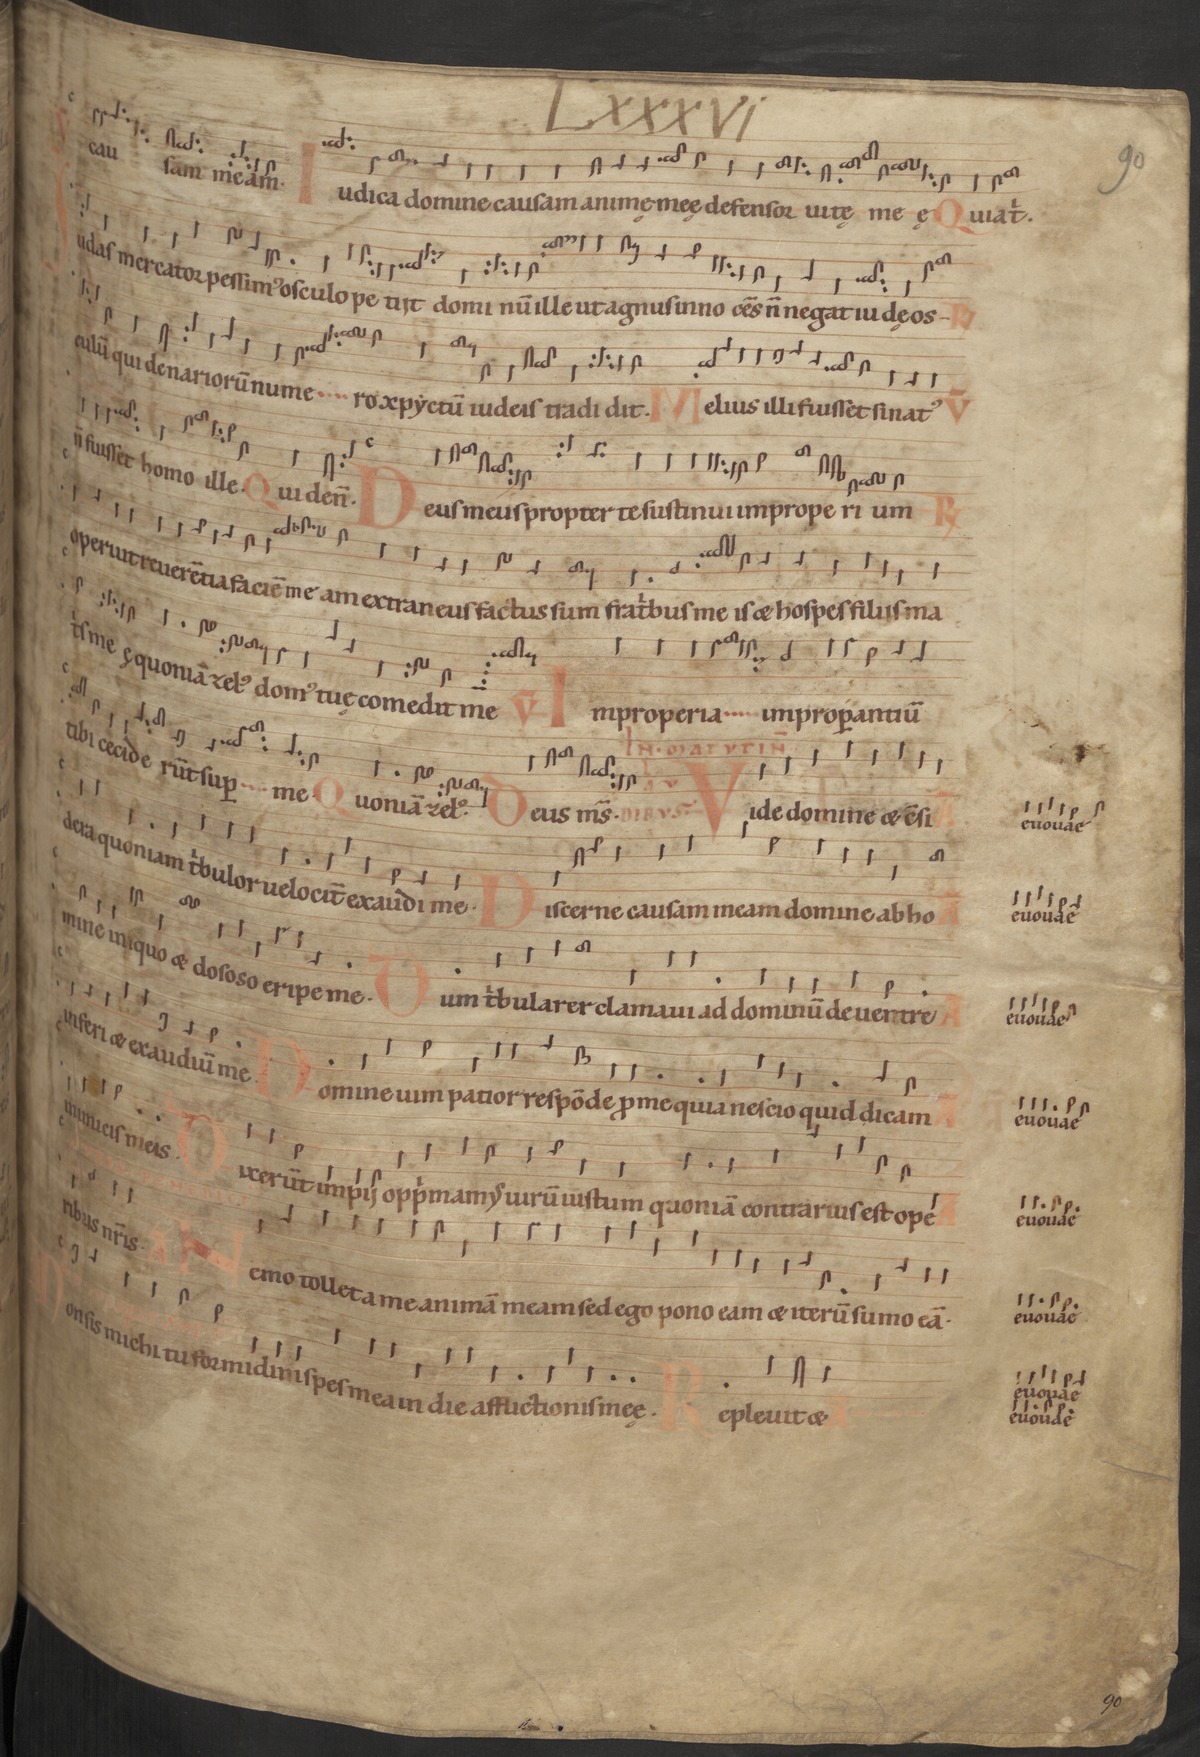 LXXXVI
90
cau sam meam. Iudica domine causam animę meę defensor uitę me ę Quiat̄.
Iudas mercator pessim᾽ osculo pe tijt domi nū ille ut agnus inno cēs n̄ negat iudę os R
culū qui denariorū nume ro xp̄ȳctū iudeis tradi dit. Melius illi fuisset si nat᾽ V̄
n̄ fuisset homo ille. Qui den̄. Deus meus propter te sustinui imprope ri um R
operuit reuerētia faciē me am extraneus factus sum frat̄bus me is æ hospes filijs ma
t̄s me ę quoniā zel᾽ dom᾽ tuę comedit me V̄ Improperia improp̱antiū
tibi cecide rūt sup̱ me Quoniā zel᾽. Deus ms̄. IN MATVTIN̄ LAVDIBVS Vide domine æ c̄si A euouae
dera quoniam t̄bulor uelocit̄ exaudi me. Discerne causam meam domine ab ho A euouae
mine iniquo æ doloso eripe me. Dum t̄bularer clamaui ad dominū de uentre A euouae
inferi æ exaudiuit me. Domine uim patior respōde p̱ me quia nescio quid dicam A euouae
inimicis meis. Dixerūt impij opp̄mamus uirū iustum quoniā contrarius est ope A euouae
ribus nr̄is. Nemo tollet a me animā meam sed ego pono eam æ iterū sumo eā. euouae
Ponsis michi tu formidini spes mea in die afflictionis meę. Repleuit æ A euouae
euouae
90